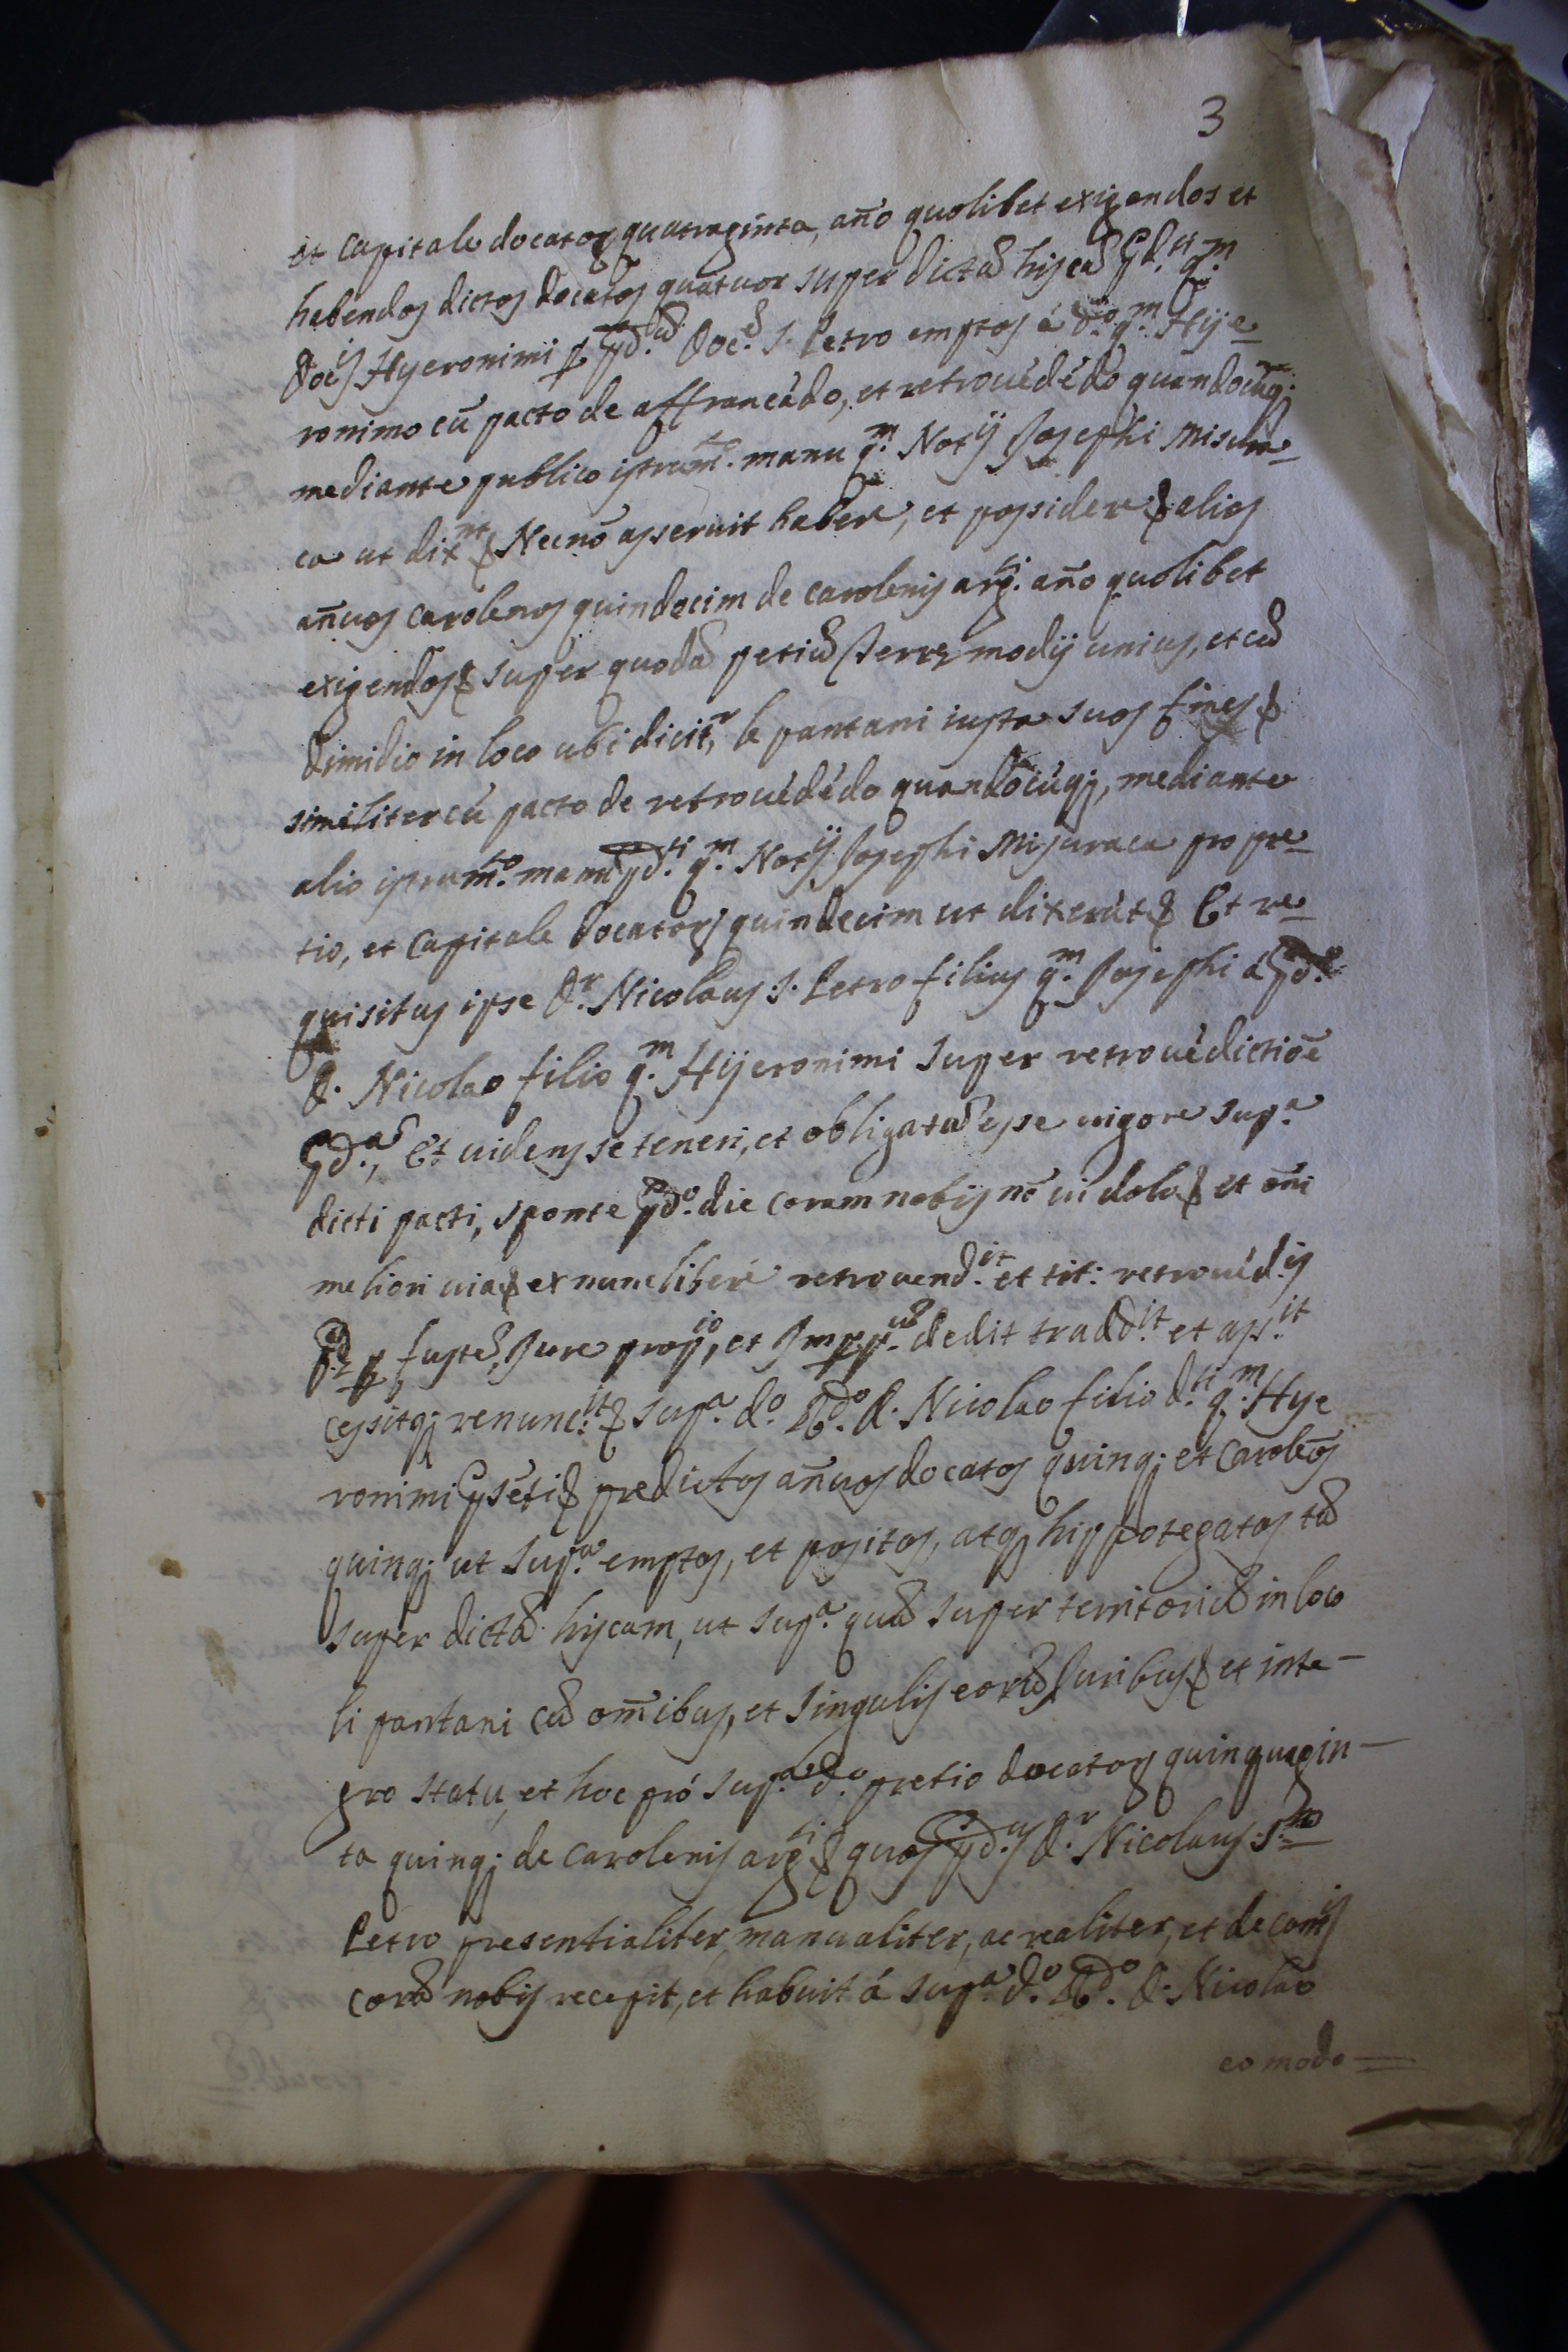 3
et capitale docatorꝝ quatraginta, año quolibet exigendos et
habendos dictos docatos quatuor super dictā hijscā pd.ti q.m
Docis Hyeronimi p pd.um Doc.ē S. Petro emptos á d.o q.m Hije_
ronimo cū pacto de affrancādo, et retrouēdēdo quandocūq;
mediante publico istrum.to manu q.m Notij Josephi Misura_
ca ut dix.nt & Necnō asseruit habere, et possidere & alios
añuos carolenos quindecim de carolenis arg.ti año quolibet
exigendos & super quodā petiū Terrę modij unius, et cū
dimidio in loco ubi dicit.r, le pantani iuxta suos fines &
similiter cū pacto de retrouēdēdo quandocūq;, mediante
alio istrum.to manu pd.ti q.m Notij Josephi Misuraca pro pre_
tio, et capitale docatorꝝ quindecim ut dixerūt & Et re_
quisitus ipse D.r Nicolaus S. Petro filius q.m Josephi á pd.o
D. Nicolao filio q.m Hijeronimi super retrouēdictiōe
pd.ā, Et uidens se teneri, et obligatū esse uigore sup.a
dicti pacti, sponte pd.o die coram nobis nō ui dolo & et om̄i
meliori uia & ex nunc liberé retrouend.it et tit: retrouēd.is
p fustē, Jure prop.io, et Imp.p.um dedit tradd.it et ass.it
cessitq; renunc.it & sup.a d.o R.do D. Nicolao filio d.ti q.m Hye
ronimi psēti & predictos añuos docatos quinq; et Carolēos
quinq; ut sup.a emptos, et positos, atq; hippotegatos tā
super dictā hijscam, ut sup.a quā super territoriū in loco
li pantani cū om̄ibus, et singulis eorū Juribus & et inte_
gro statu, et hoc pró sup.a d.o pretio docatorꝝ quinquagin_
ta quinq; de carolenis arg.ti & quos pd.us D.r Nicolaus S.to
Petro presentialiter, manualiter, ac realiter, et de contis
corā nobis recepit, et habuit á sup.a d.o R.do D. Nicolao
eo modo =